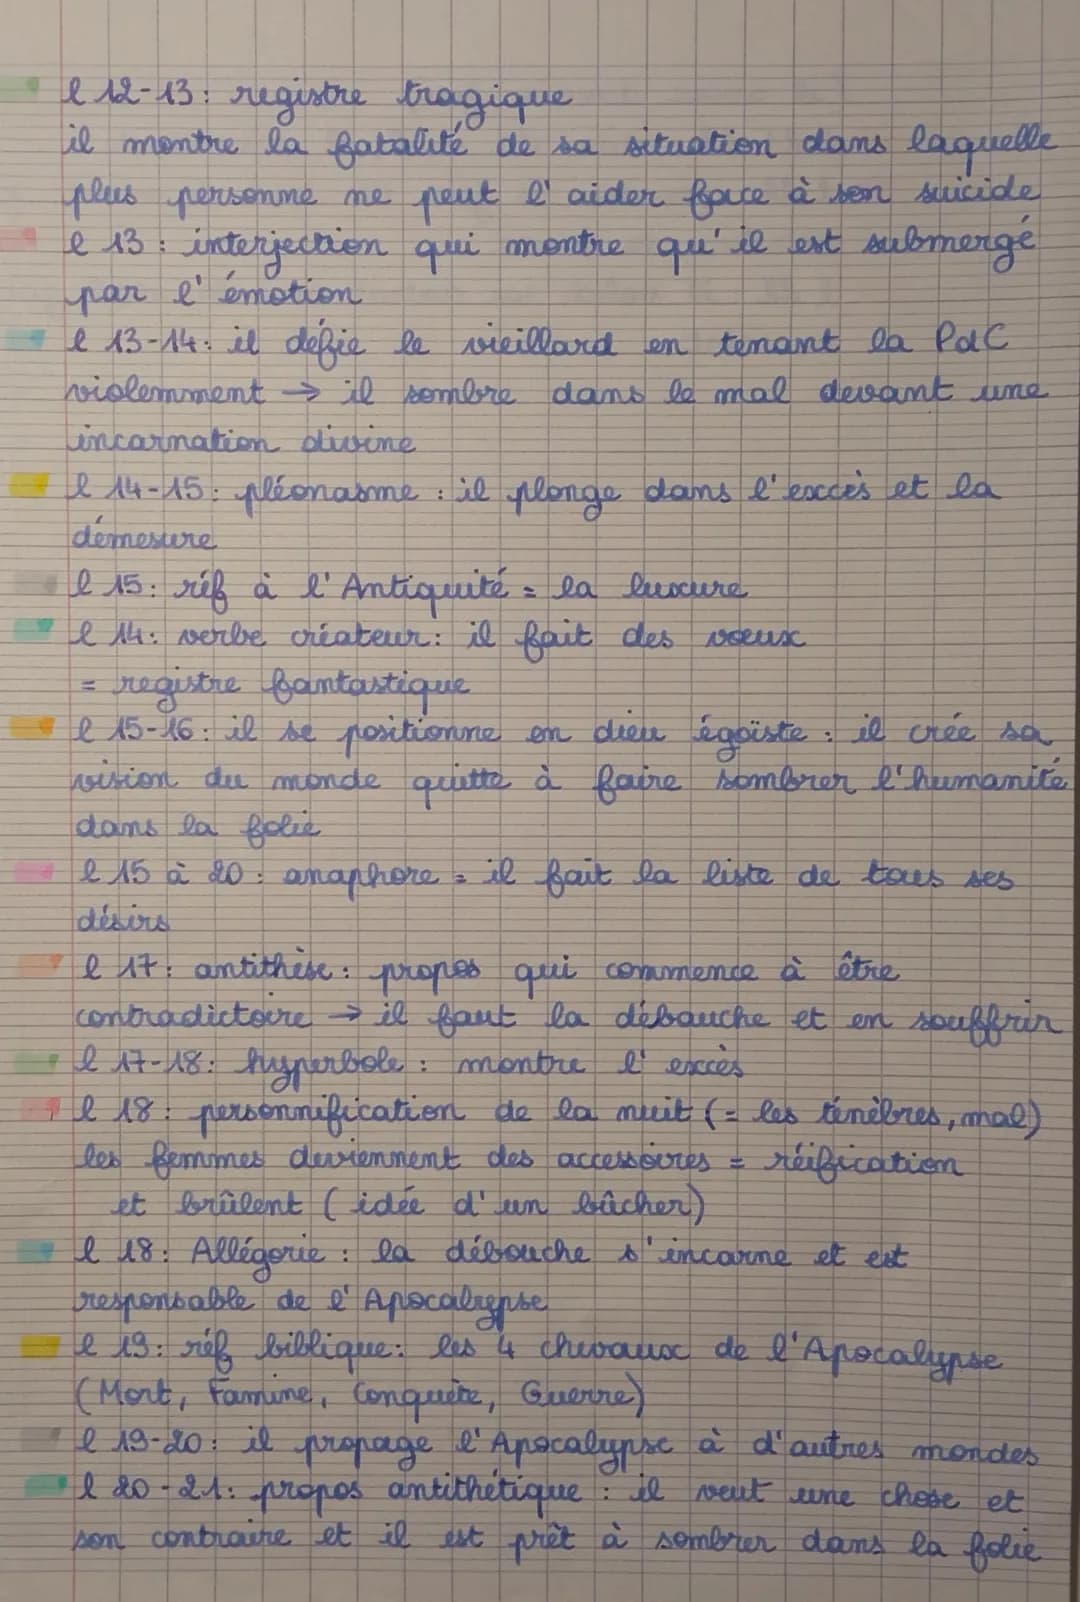 l 12-13 : registre tragique
il montre la fatalité de sa situation dans laquelle
plus personne ne peut l'aider face à son suicide
l 13 : interjection qui montre qu'il est submergé
par l'émotion
l 13-14 : il défie le vieillard en tenant la PdC
violemment → il sombre dans le mal devant une
incarnation divine
l 14-15 : pléonasme : il plonge dans l'excès et la
démesure
l 15 : réf à l'Antiquité = la luxure
l 14 : verbe créateur : il fait des voeux
= registre fantastique
l 15-16 : il se positionne en dieu égoïste : il crée sa
vision du monde quitte à faire sombrer l'humanité
dans la folie
l 15 à 20 : anaphore = il fait la liste de tous ses
désirs
l 17 : antithèse : propos qui commence à être
contradictoire → il faut la débauche et en souffrir
l 17-18 : hyperbole : montre l'excès
l 18 : personnification de la nuit (= les ténèbres, mal)
les femmes deviennent des accessoires = réification
et brûlent (idée d'un bûcher)
l 18 : Allégorie : la débouche s'incarne et est
responsable de l'Apocalypse
l 19 : réf biblique : les 4 chevaux de l'Apocalypse
(Mort, Famine, Conquête, Guerre)
l 19-20 : il propage l'Apocalypse à d'autres mondes
l 20-21 : propos antithétique : il veut une chose et
son contraire et il est prêt à sombrer dans la folie